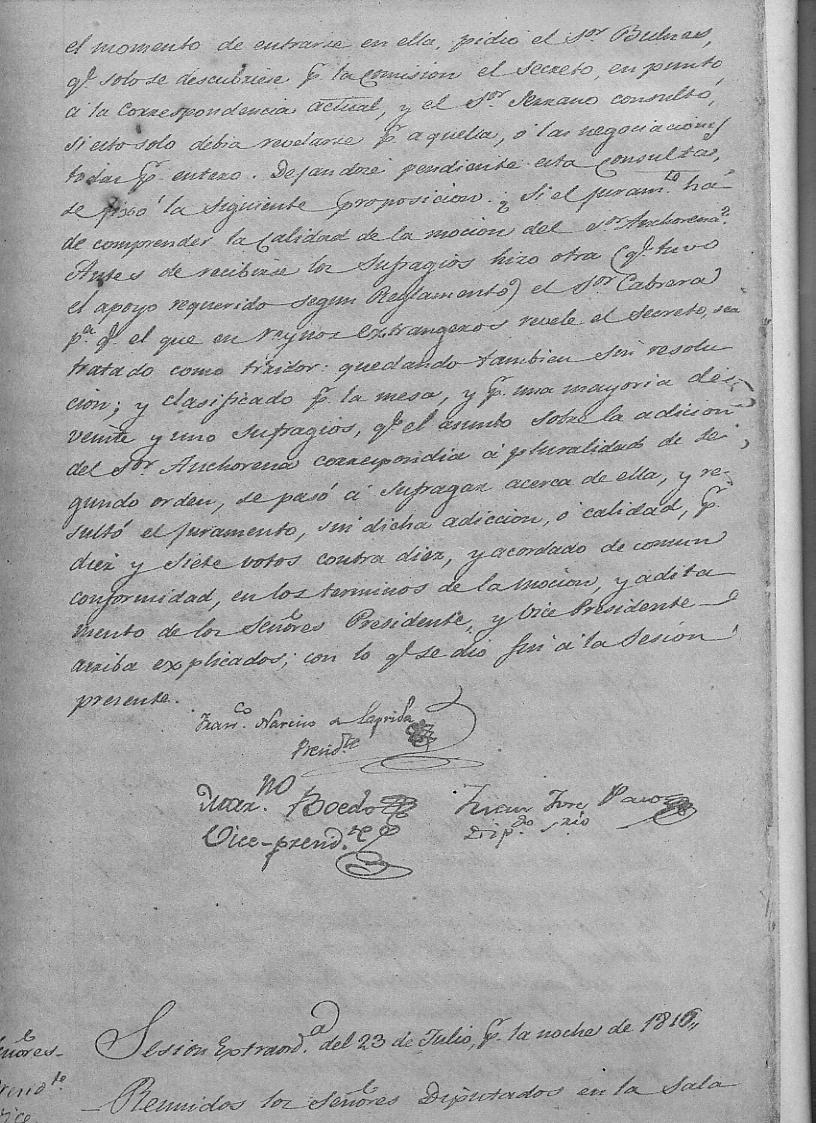 el momento de entrarse en ella, pidio el S.or Bulnes,
q.e solo se descubriese p.r la Comision el secreto, en punto
á la correspondencia actual, y el S.or Serrano consultó,
si esto solo debia revelarse p.r aquella, ó las negociaciones
todas p.r entero. Dejandose pendiente esta consulta,
se fixó la siguiente proposicion. ¿ Si el juram.to há
de comprender la Calidad de la mocion del S.or Anchorena?
Antes de recibirse los sufragios hizo otra (q.e tuvo
el apoyo requerido segun Reglamento) el S.or Cabrera
p.a q.e el que en reynos extrangeros revele el secreto, sea
tratado como traidor: quedando tambien sin resolu
cion; y clasificado p.r la mesa, y p.r una mayoria de
veinte y uno sufragios, q.e el asunto sobre la adicion
del S.or Anchorena correspondia á pluralidad de se-
gundo orden, se pasó á sufragar acerca de ella, y re-
sultó el juramento, sin dicha adiccion, ó calidad, p.r
diez y siete votos contra diez, y acordado de comun
conformidad, en los terminos de la mocion, y adita
mento de los Señores Presidente, y Vice Presidente
arriba explicados; con lo q.e se dió fin á la Sesion
presente.
Fran.co Narciso de Laprida
Presid.te
Mar.no Boedo
Vice-presid.te
Juan José Paso
Dip.do S.rio
Sesion Extraord.a del 23 de Julio, p.r la noche de 1816,,
Reunidos los Señores Diputados en la Sala